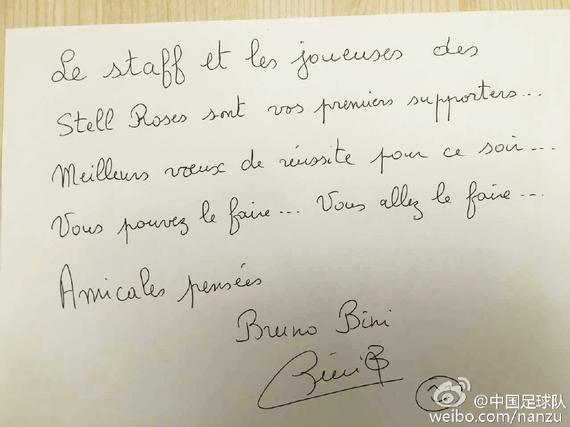 Le staff et les joueuses des
Stell Roses sont vos premiers supporters...
Meilleurs vœux de réussite pour ce soir...
Vous pouvez le faire... Vous allez le faire...
Amicales pensées
Bruno Bini
Bini B
@中国足球队
weibo.com/nanzu